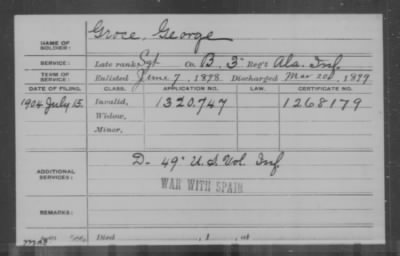 NAME OF SOLDIER: Groce, George
SERVICE: Late rank, Sgt Co. B, 3" Reg't Ala. Inf.
TERM OF SERVICE: Enlisted June 7, 1898 Discharged Mar 20, 1899
DATE OF FILING. CLASS. APPLICATION NO. LAW. CERTIFICATE NO.
1904 July 15. Invalid, 1320,747 1268179
Widow,
Minor,
ADDITIONAL SERVICES: D- 49" U.S. Vol. Inf
WAR WITH SPAIN
REMARKS:
Died , 1 , at